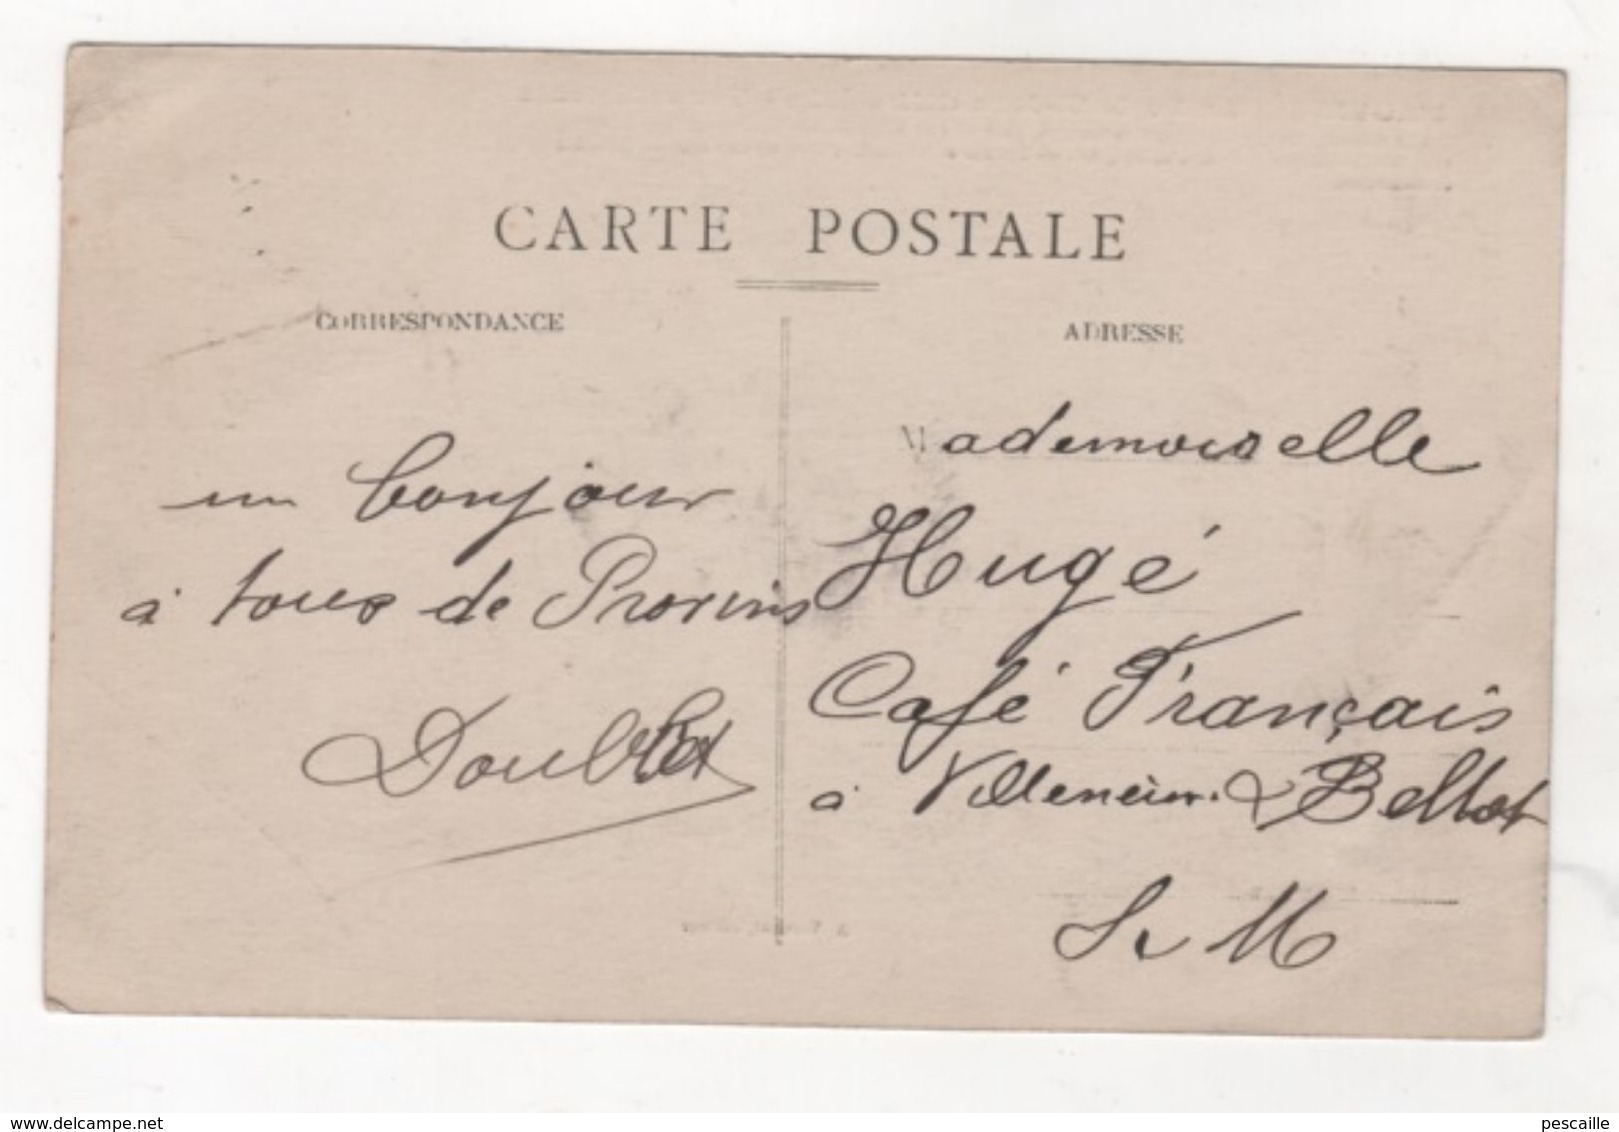 CARTE POSTALE
CORRESPONDANCE
un bonjour
à tous de Provins
ADRESSE
Mademoiselle
Hugé
Café Français
à Villeneuve. s Bellot
S. M
www.delcampe.net
pescaille